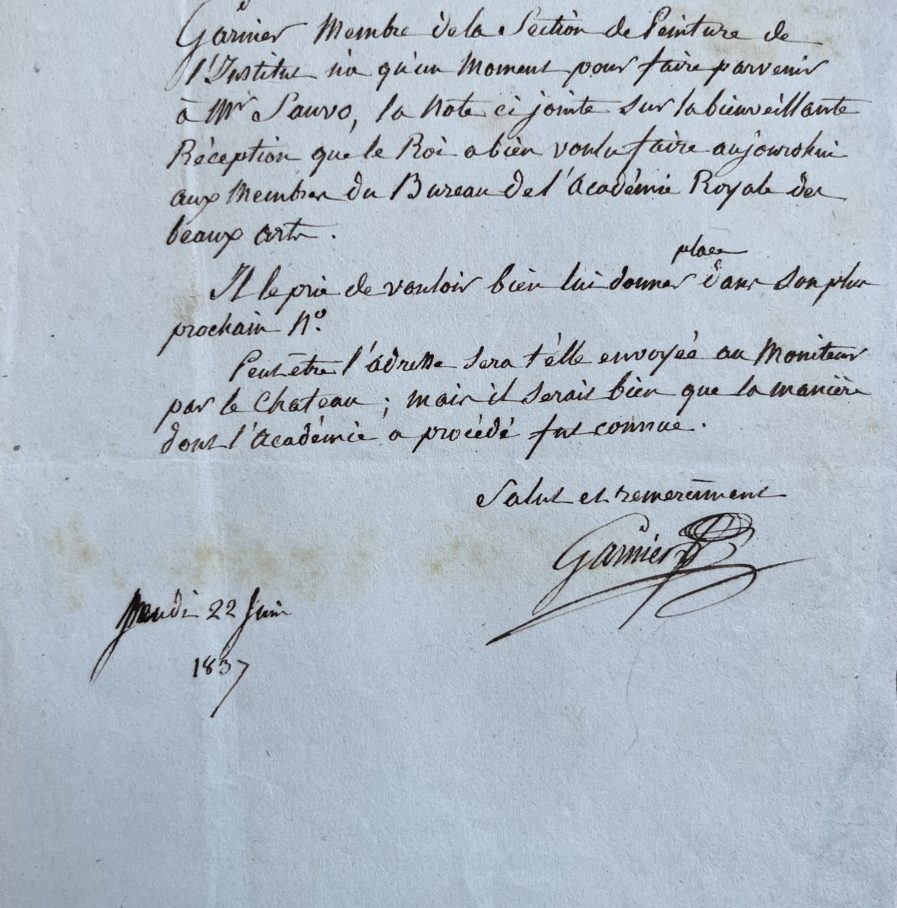 Garnier Membre de la Section de Peinture de
l'Institut n'a qu'un Moment pour faire parvenir
à Mr Sauvo, la Note ci jointe sur la bienveillante
Réception que le Roi a bien voulu faire aujourdhui
aux Membres du Bureau de l'Académie Royale des
beaux arts.
Il le prie de vouloir bien lui donner place dans son plus
prochain No.
Peut être l'adresse sera t'elle envoyée au Moniteur
par le Chateau ; mais il serait bien que la manière
dont l'Académie a procédé fut connue.
Salut et remerciment
Garnier
Jeudi 22 Juin
1837